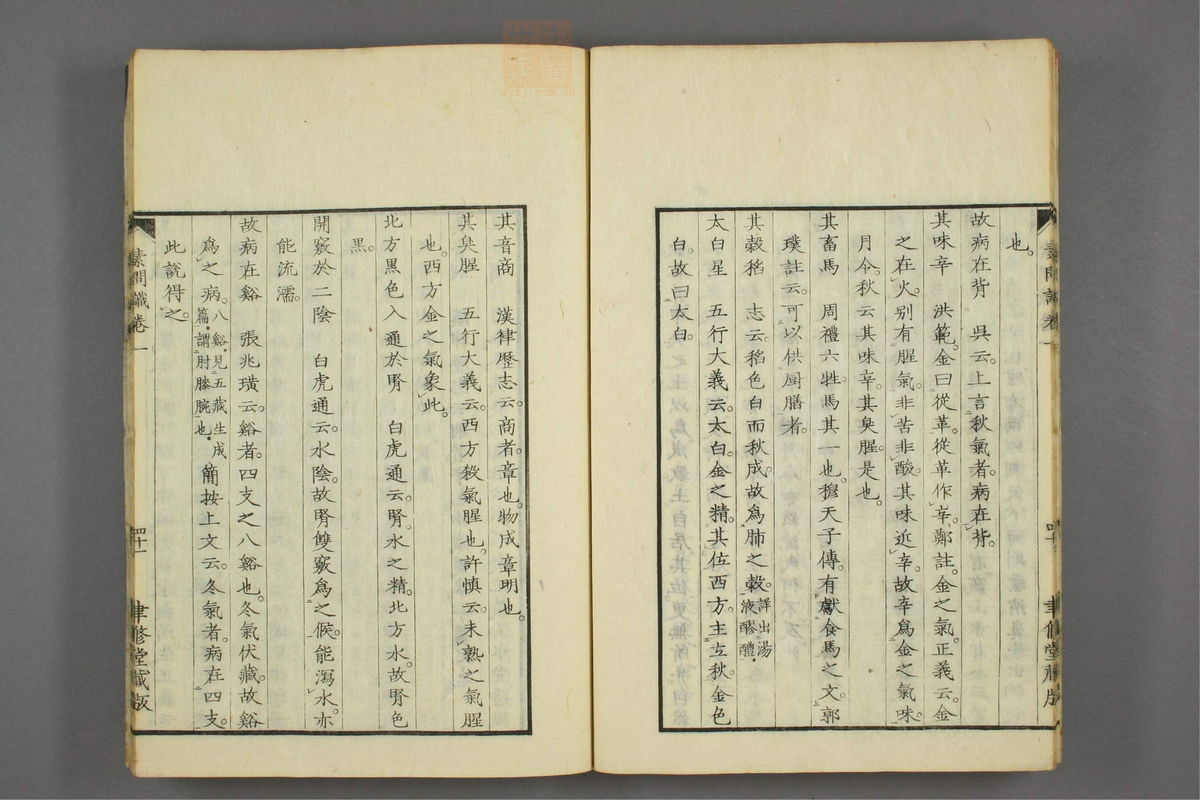 也。
故病在背　吳云。上言秋氣者。病在背。
其味辛　洪範。金曰從革。從革作辛。鄭註。金之氣。正義云。金
之在火。別有腥氣。非苦非酸。其味近辛。故辛爲金之氣味。
月令。秋云其味辛。其臭腥。是也。
其畜馬　周禮六牲。馬其一也。穆天子傳。有獻食馬之文。郭
璞註云。可以供厨膳者。
其穀稻　志云。稻色白而秋成。故爲肺之穀。詳出湯液醪醴。
太白星　五行大義云。太白。金之精。其位西方。主立秋。金色
白。故曰太白。
其音商　漢律歷志云。商者。章也。物成章明也。
其臭腥　五行大義云。西方殺氣腥也。許慎云。未熟之氣腥
也。西方金之氣象此。
北方黑色入通於腎　白虎通云。腎。水之精。北方水。故腎色
黑。
開竅於二陰　白虎通云。水陰。故腎雙竅爲之候。能瀉水。亦
能流濡。
故病在谿　張兆璜云。谿者。四支之八谿也。冬氣伏藏。故谿
爲之病。八谿。見五藏生成篇。謂肘膝腕也。簡按上文云。冬氣者。病在四支。
此說得之。
素問識卷一
四十一
聿修堂藏版